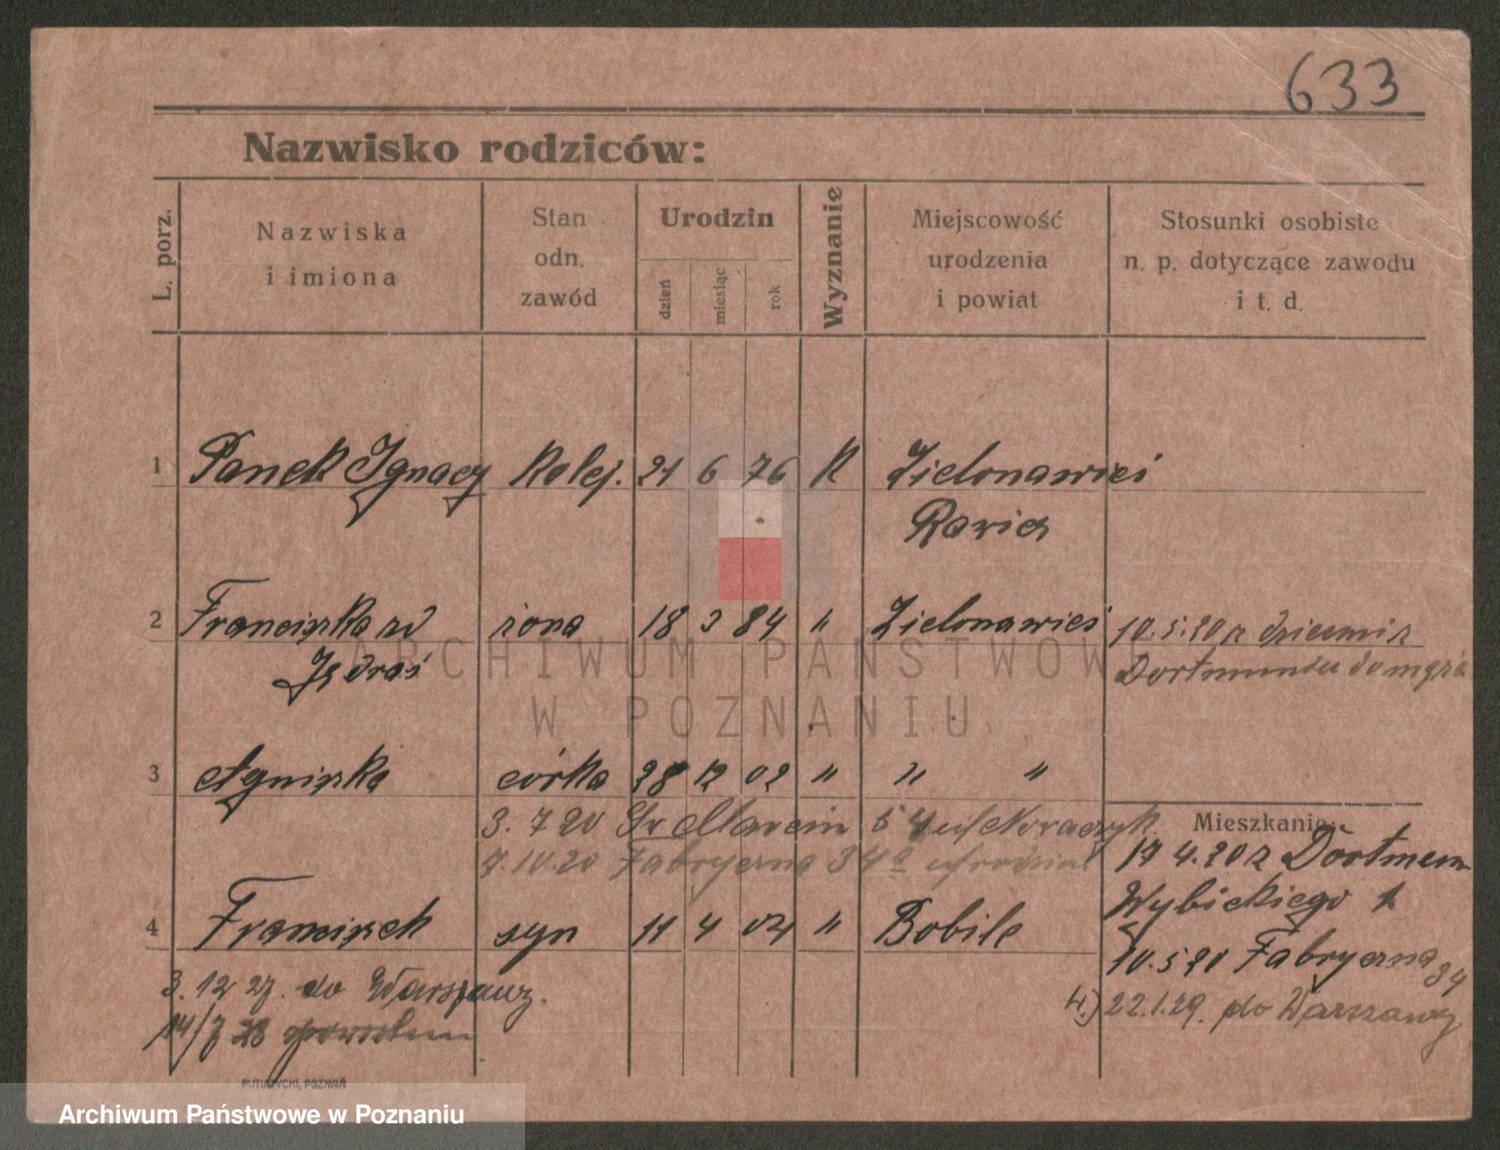 633
Nazwisko rodziców:
L. porz.
Nazwiska
i imiona
Stan
odn.
zawód
Urodzin
dzień
miesiąc
rok
Wyznanie
Miejscowość
urodzenia
i powiat
Stosunki osobiste
n. p. dotyczące zawodu
i t. d.
1 Panek Ignacy Kolej. 21 6 76 K Zielonawieś
Rawicz
2 Franciszka zd żona 18 3 84 " Zielonawieś 10.5.20 z dziećmi z
Jędraś Dortmundu do męża
ARCHIWUM PAŃSTWOWE
W POZNANIU
3 Agniszka córka 28 12 02 " " "
3. 7 20 Św Marcin 54
7.10.20 Fabryczna 34a
Mieszkanie:
17 4.20 z Dortmun
Wybickiego 1
4 Franciszek syn 11 4 04 " Bobile
10.5 20 Fabryczna 34
3. 12 27. do Warszawy.
14/7 28
4.) 22.1.29. do Warszawy
PUTIATYCKI, POZNAŃ
Archiwum Państwowe w Poznaniu